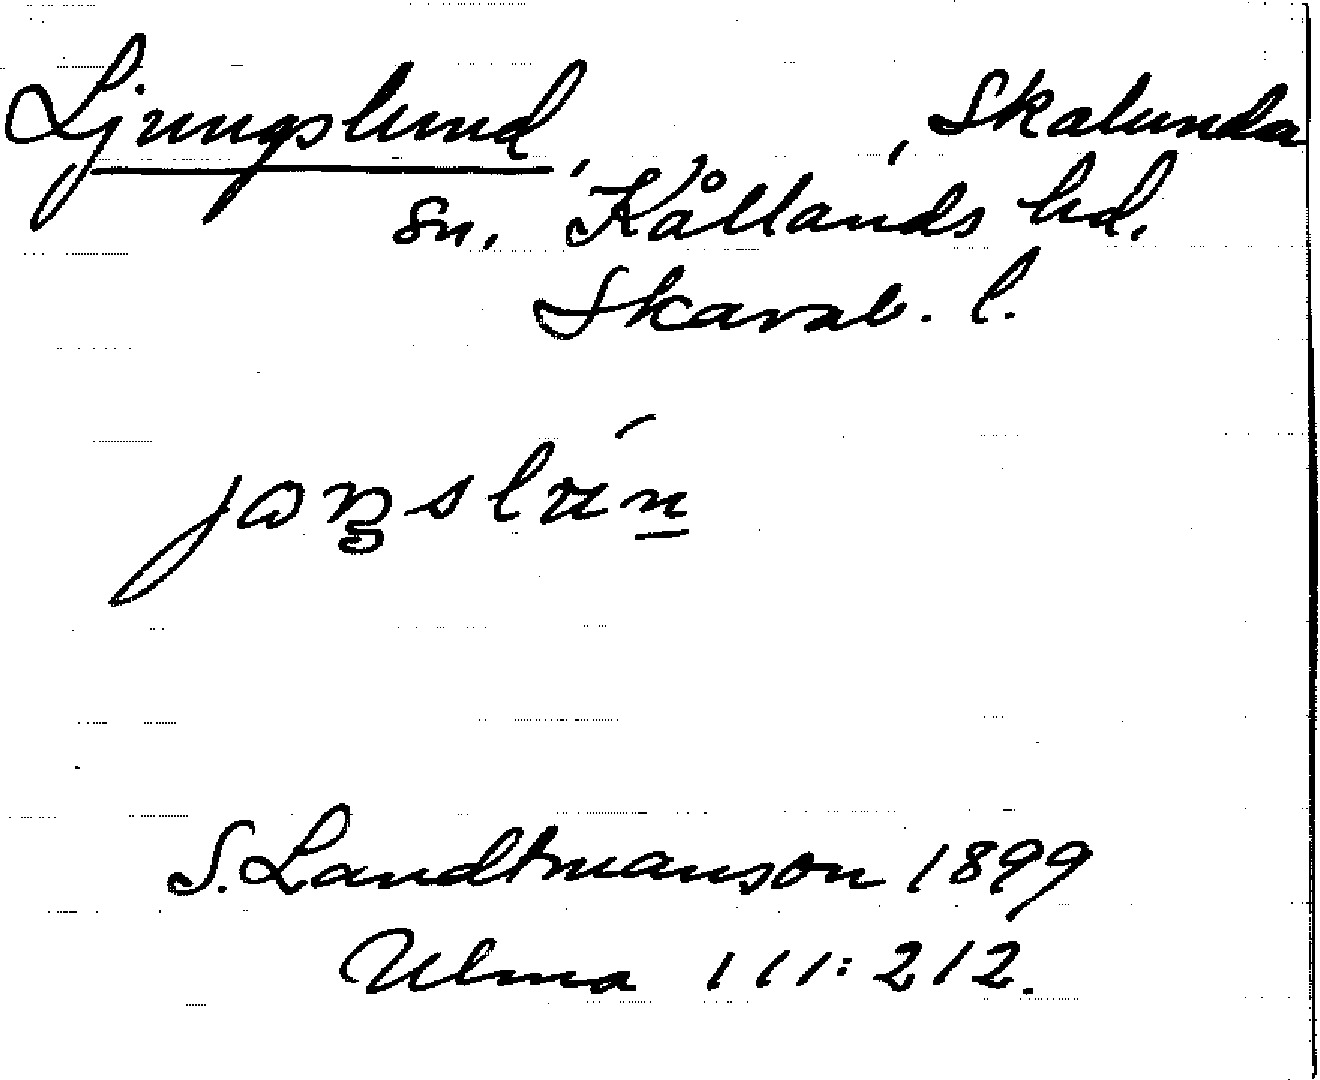 Ljungslund, , Skalunda
sn, Kållands hd.
Skarab. l.
S. Landtmanson 1899
Ulma 111:212.